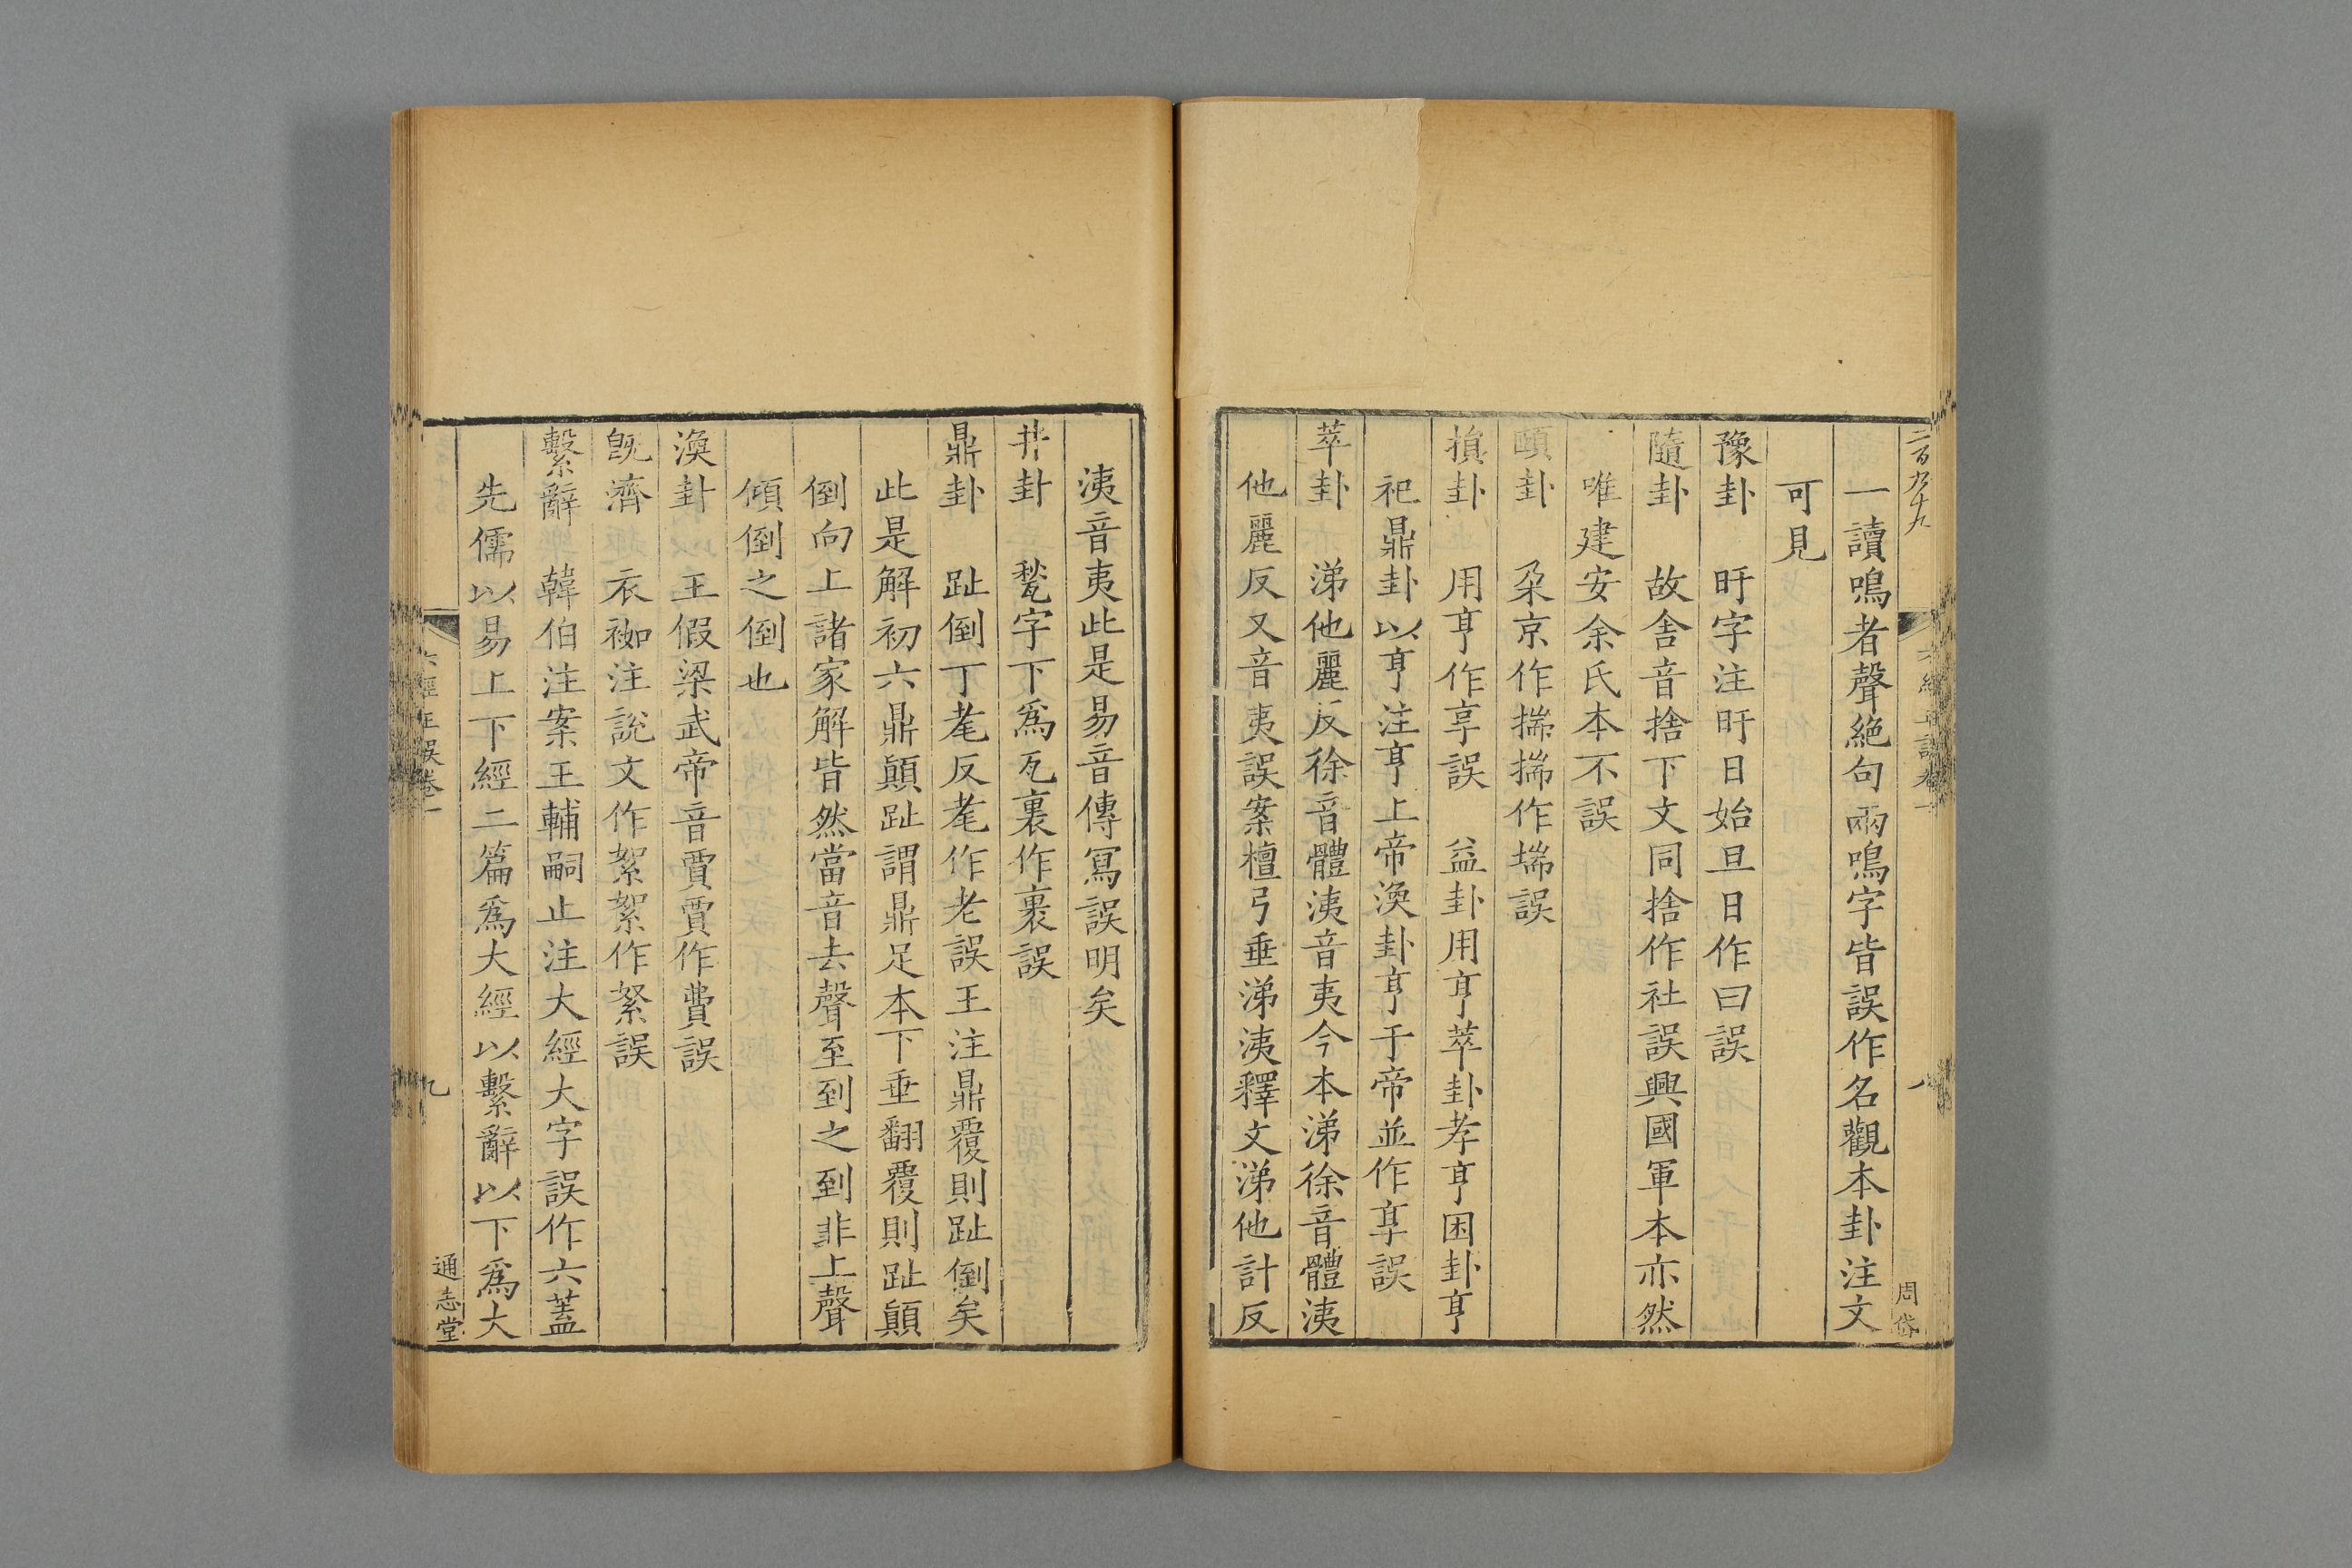 二百九十九
周岱
一讀鳴者聲絶句兩鳴字皆誤作名觀本卦注文
可見
豫卦 旴字注旴日始旦日作曰誤
隨卦 故舍音捨下文同捨作社誤興國軍本亦然
唯建安余氏本不誤
頤卦 朶京作揣揣作端誤
損卦 用亨作享誤 益卦用亨萃卦孝亨困卦亨
祀鼎卦以亨注亨上帝渙卦亨于帝並作享誤
萃卦 涕他麗反徐音體洟音夷今本涕徐音體洟
他麗反又音夷誤案檀弓垂涕洟釋文涕他計反
洟音夷此是易音傳冩誤明矣
井卦 甃字下爲瓦裏作裹誤
鼎卦 趾倒丁耄反耄作老誤王注鼎覆則趾倒矣
此是解初六鼎顛趾謂鼎足本下垂翻覆則趾顛
倒向上諸家解皆然當音去聲至到之到非上聲
傾倒之倒也
渙卦 王假梁武帝音賈賈作費誤
旣濟 衣袽注説文作絮絮作絮誤
繫辭 韓伯注案王輔嗣止注大經大字誤作六蓋
先儒以易上下經二篇爲大經以繫辭以下爲大
六經正誤卷一
九
通志堂